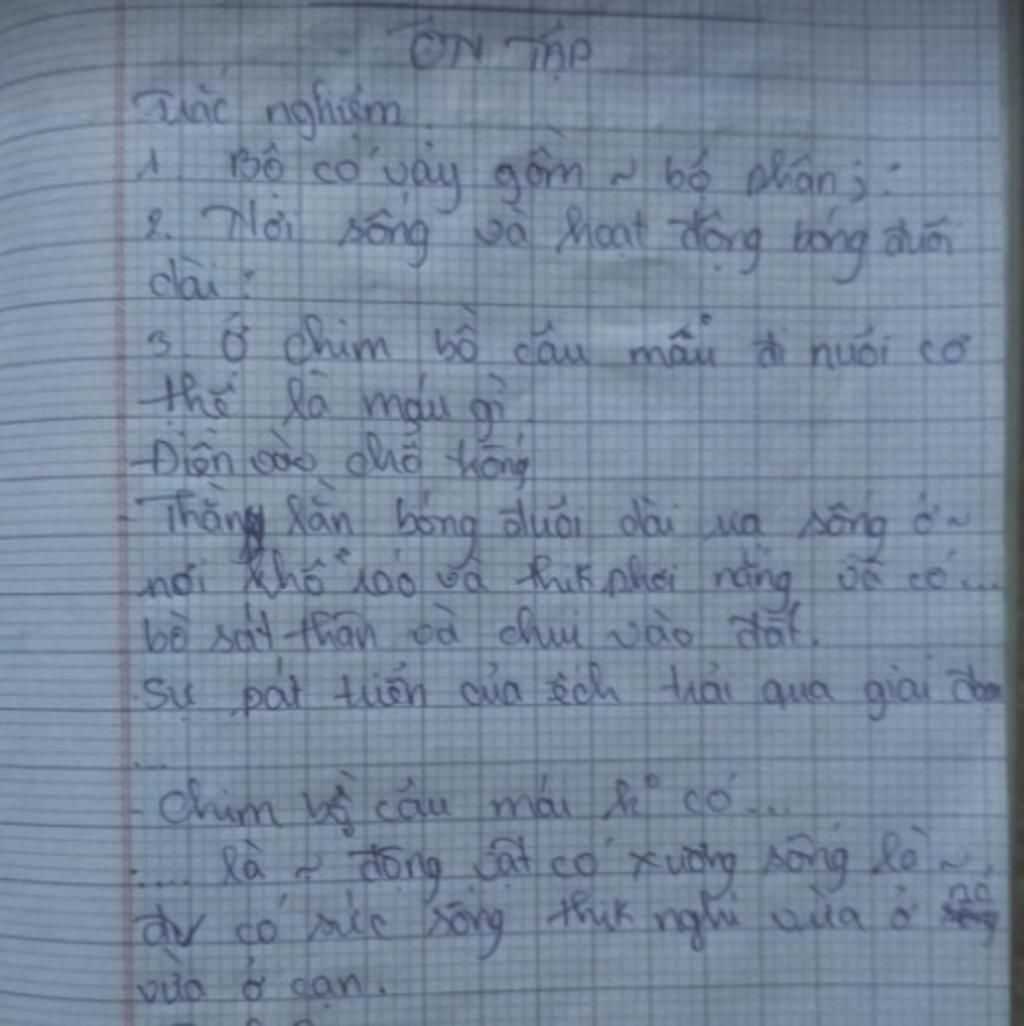 ÔN TẬP
Trắc nghiệm
1. Bộ có vảy gồm ~ bộ phận;:
2. Nơi sống và hoạt động bóng đuôi
dài:
3. Ở chim bồ câu mẫu đi nuôi cơ
thể là máu gì.
Điền vào chỗ trống
- Thằng lằn bóng đuôi dài ưa sống ở ~
nơi khô ráo và thik phơi nắng và có...
bò sát thân và chui vào đất.
Sự pát triển của ếch trải qua giai
...
- Chim bồ câu mái k° có...
.... là ~ động vật có xương sống là ~
đv có sức sống thik nghi vừa ở
vừa ở cạn.